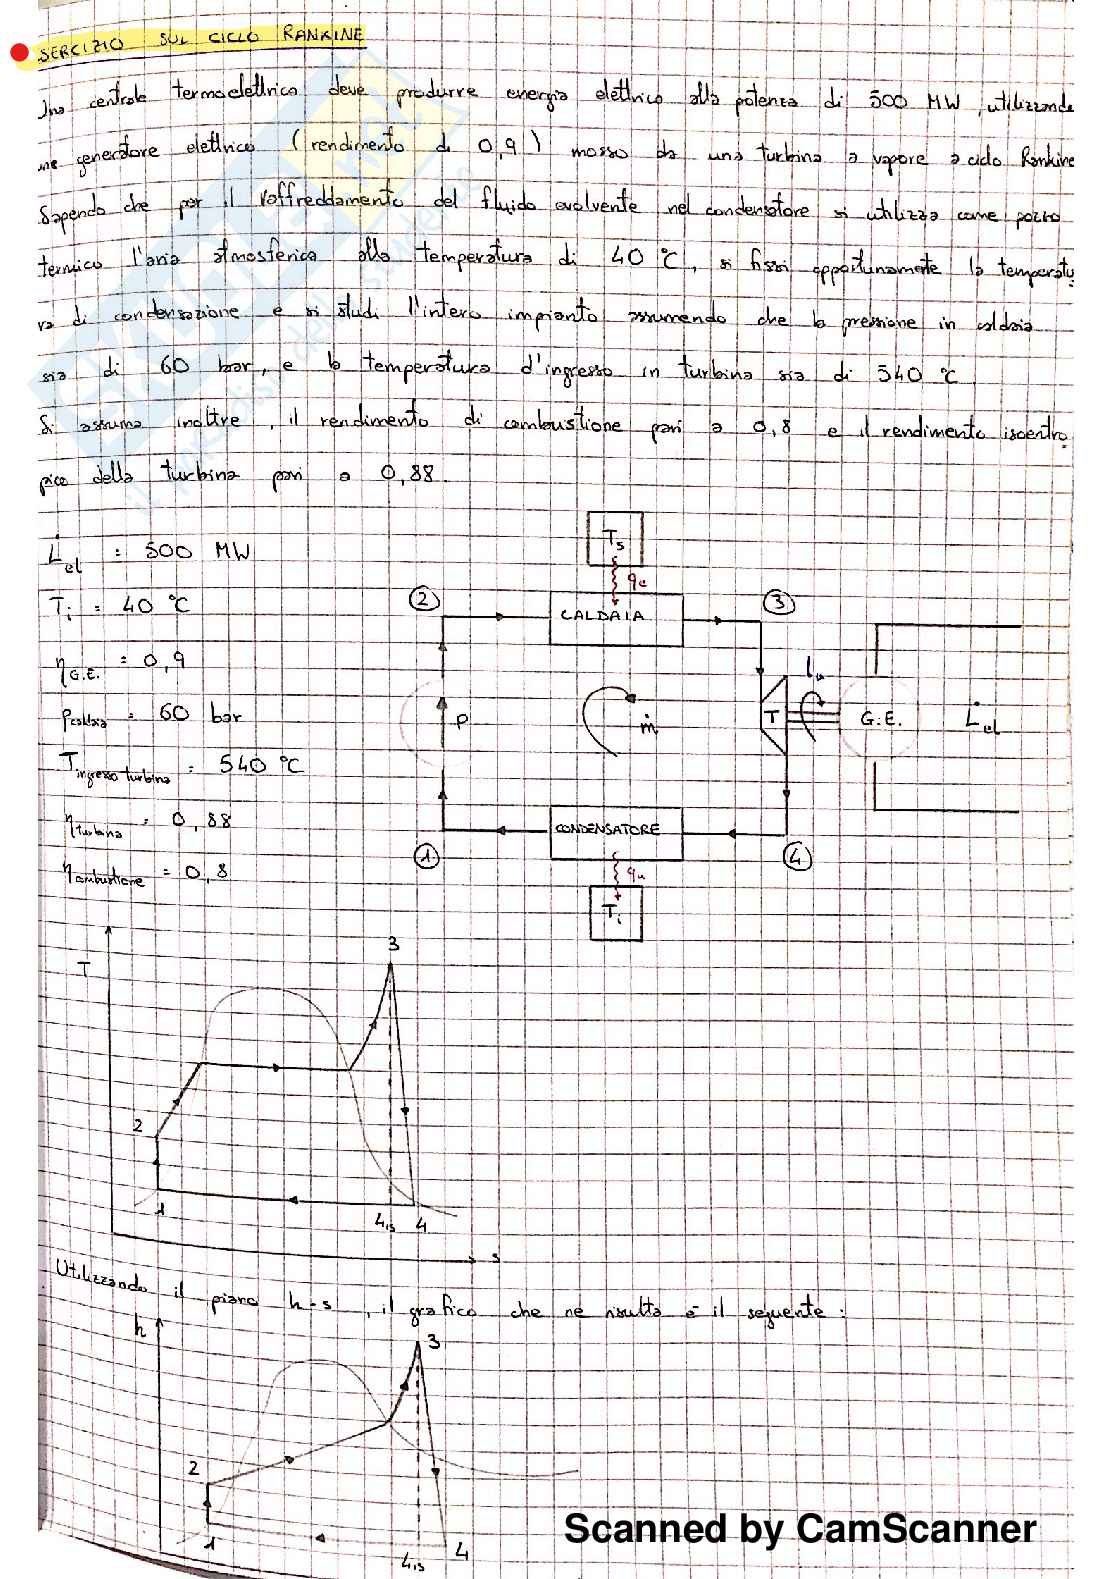 SERCIZIO SUL CICLO RANKINE
Una centrale termoelettrica deve produrre energia elettrica alla potenza di 500 MW, utilizzando
ne generatore elettrico (rendimento di 0,9) mosso da una turbina a vapore a ciclo Rankine
Sapendo che per il raffreddamento del fluido evolvente nel condensatore si utilizza come pozzo
termico l'aria atmosferica alla temperatura di 40 °C, si fissi opportunamente la temperatu
ra di condensazione e si studi l'intero impianto assumendo che la pressione in caldaia
sia di 60 bar, e la temperatura d'ingresso in turbina sia di 540 °C
Si assuma inoltre, il rendimento di combustione pari a 0,8 e il rendimento isoentro
pico della turbina pari a 0,88.
L̇el = 500 MW
Ti = 40 °C
ηG.E. = 0,9
pcaldaia = 60 bar
Tingresso turbina = 540 °C
ηturbina = 0,88
ηcombustione = 0,8
Ts
qe
2 CALDAIA 3
lu
P ṁ T G.E. L̇el
CONDENSATORE
1 4
qu
Ti
3
T
2
1 4is 4 s
Utilizzando il piano h-s, il grafico che ne risulta è il seguente:
h 3
2
1 4is 4
Scanned by CamScanner